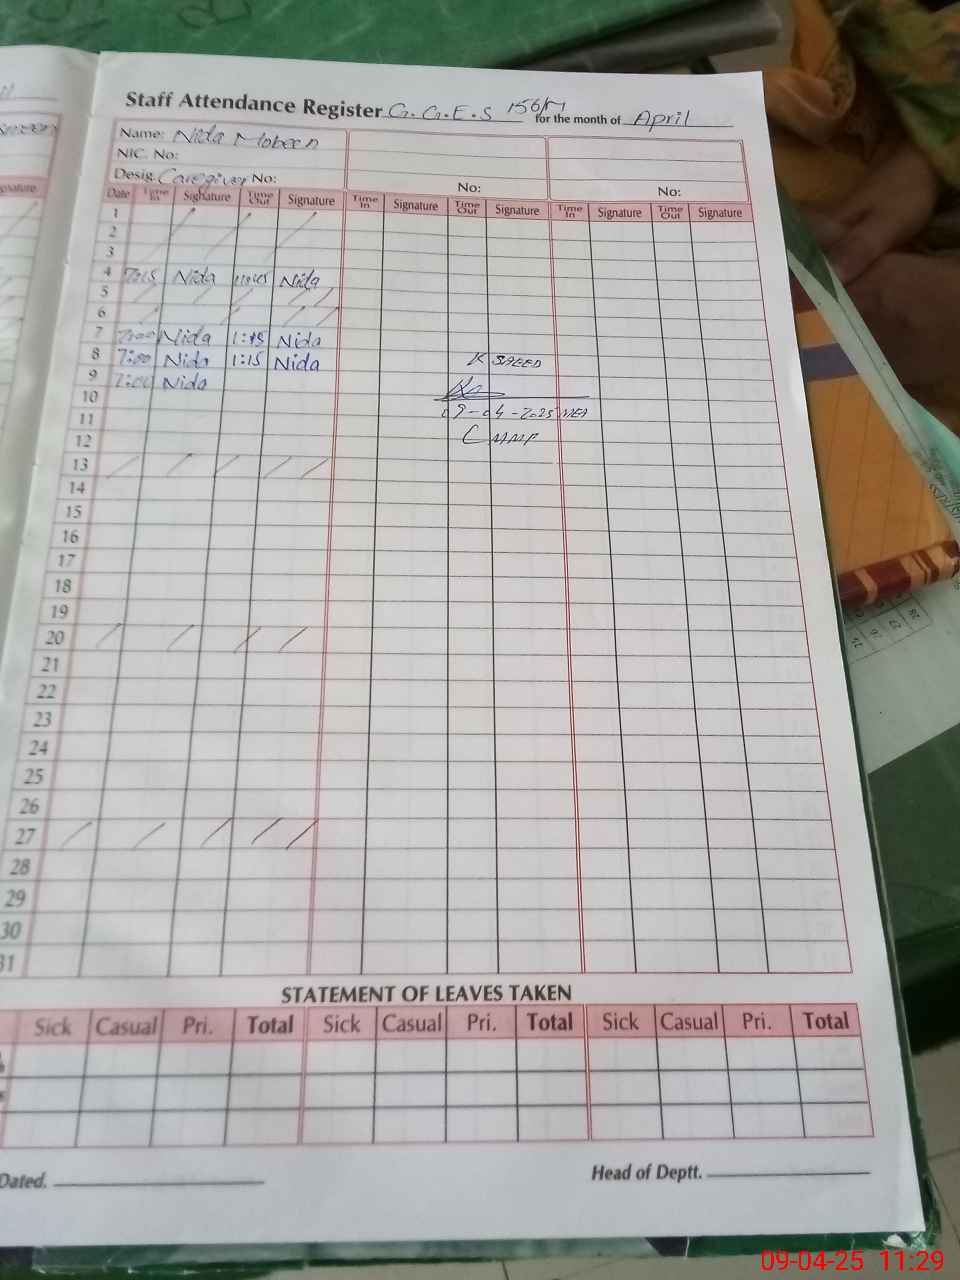 Staff Attendance Register G.G.E.S 156/M for the month of April
Name: Nida Mobeen
NIC. No:
Desig. Caregiver No: No: No:
Date Time In Signature Time Out Signature Time In Signature Time Out Signature Time In Signature Time Out Signature
1
2
3
4 7:15 Nida Nida
5
6
7 7:00 Nida 1:15 Nida
8 7:00 Nida 1:15 Nida K SAEED
9 7:00 Nida
10
11 09-04-2025 MEA
12
13
14
15
16
17
18
19
20
21
22
23
24
25
26
27
28
29
30
31
STATEMENT OF LEAVES TAKEN
Sick Casual Pri. Total Sick Casual Pri. Total Sick Casual Pri. Total
Dated. Head of Deptt.
09-04-25 11:29